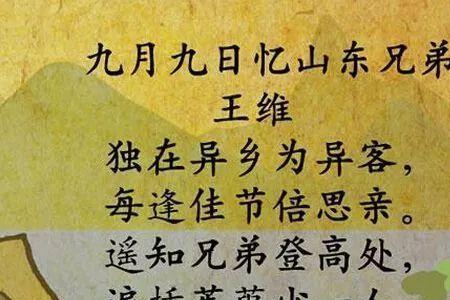 九月九日忆山东兄弟
王维
独在异乡为异客，
每逢佳节倍思亲。
遥知兄弟登高处，